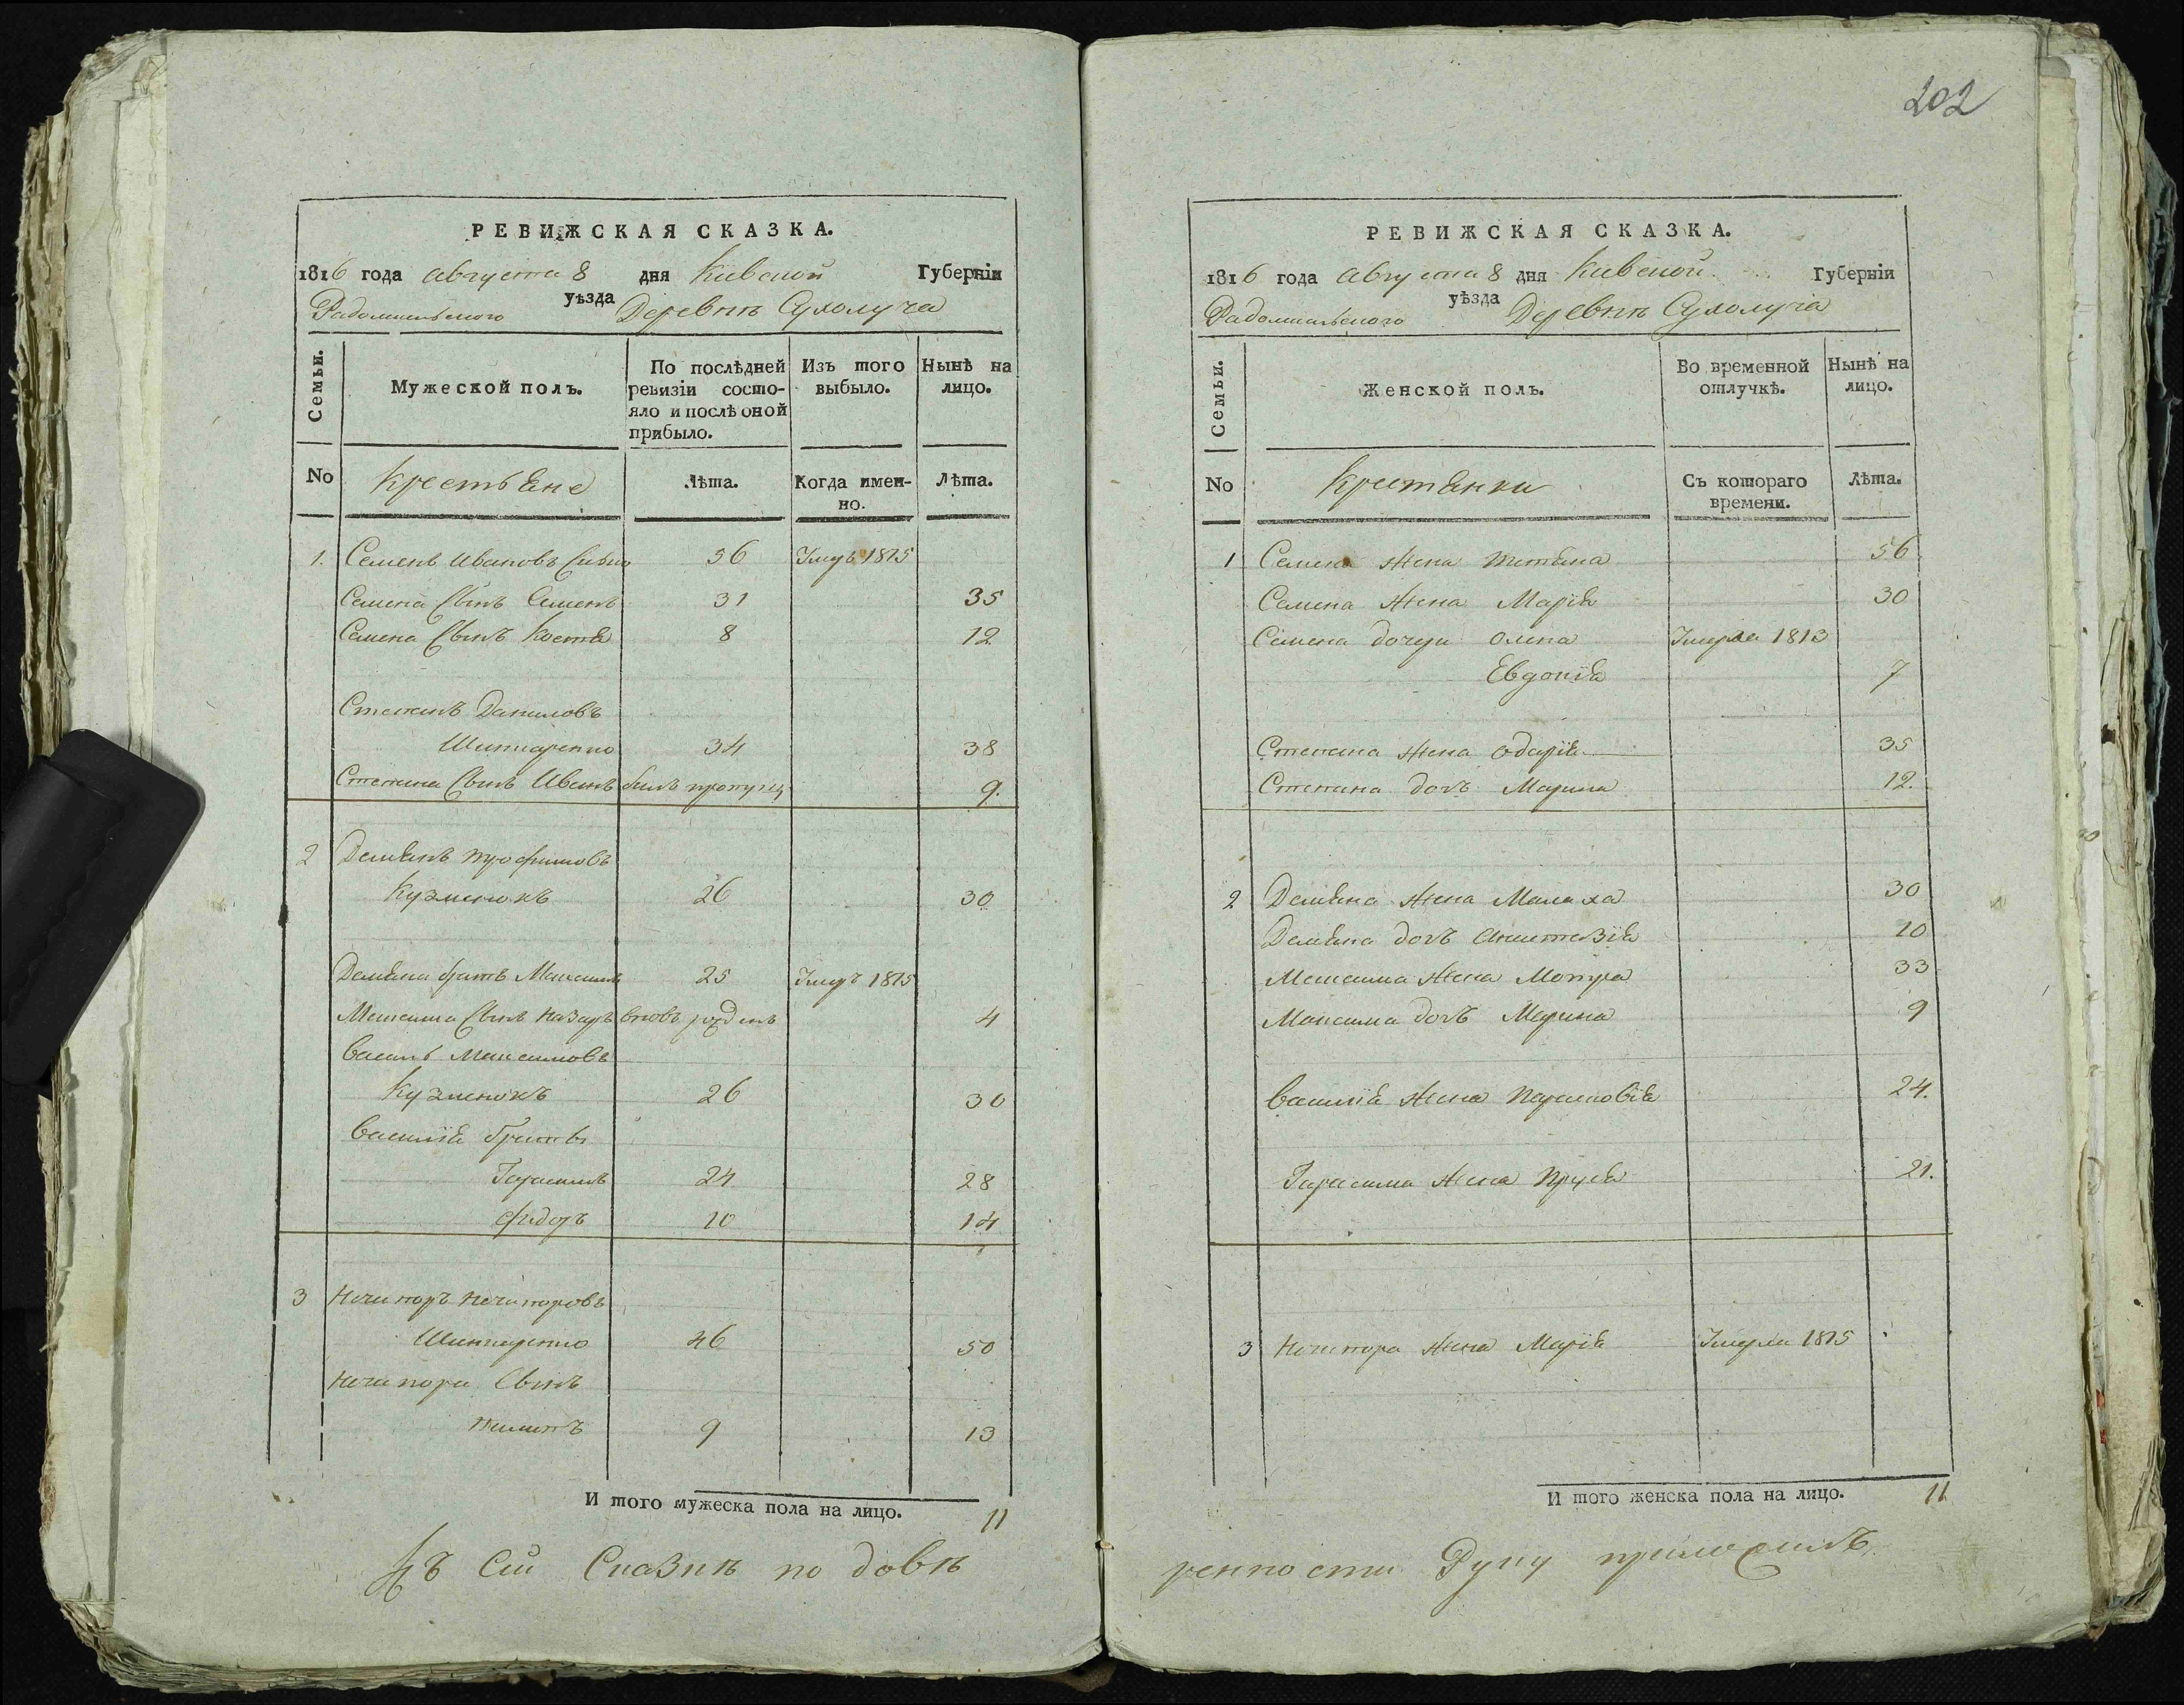 РЕВИЖСКАЯ СКАЗКА.
1816 года августа 8 дня Киевской Губернїи
Радомысльского уѣзда Деревнѣ Сухолуча
Семьи.
Мужеской полъ.
По послѣдней ревизїи состояло и послѣ оной прибыло.
Изъ того выбыло.
Нынѣ на лицо.
No Крестьяне Лѣта. Когда именно. Лѣта.
1. Семенъ Ивановъ 56 Умръ 1815
Семена Сынъ Семенъ 31 35
Семена Сынъ Костя 8 12
Степанъ Даниловъ
Шинкаренко 34 38
Степана Сынъ Иванъ былъ 9.
2 Демянъ Трофимовъ
Кузменокъ 26 30
Демяна братъ Максимъ 25 Умръ 1815
Максима Сынъ Назаръ вновь рожденъ 4
Василь Максимовъ
Кузменокъ 26 30
Василїя братья
Герасимъ 24 28
Федоръ 10 14
3 Ничипоръ Ничипоровъ
Шинкаренко 46 50
Ничипора Сынъ
9 13
И того мужеска пола на лицо. 11
Къ Сей Сказкѣ по довѣ
202
РЕВИЖСКАЯ СКАЗКА.
1816 года августа 8 дня Киевской Губернїи
Радомысльского уѣзда Деревнѣ Сухолуча
Семьи.
Женской полъ.
Во временной отлучкѣ.
Нынѣ на лицо.
No Крестянки Съ котораго времени. Лѣта.
1 Семена жена Тетяна 56
Семена жена Марїя 30
Семена дочери Олена Умерла 1813
Евдокїя 7
Степана жена Одарїя 35
Степана дочъ Марина 12.
2 Демяна жена Малаха 30
Демяна дочъ Анастазїя 10
Максима жена Мотра 33
Максима дочъ Марина 9
Василїя жена Парасковїя 24.
Герасима жена 21.
3 Ничипора жена Марїя Умерла 1815
И того женска пола на лицо. 11
ренности Руку приложилъ